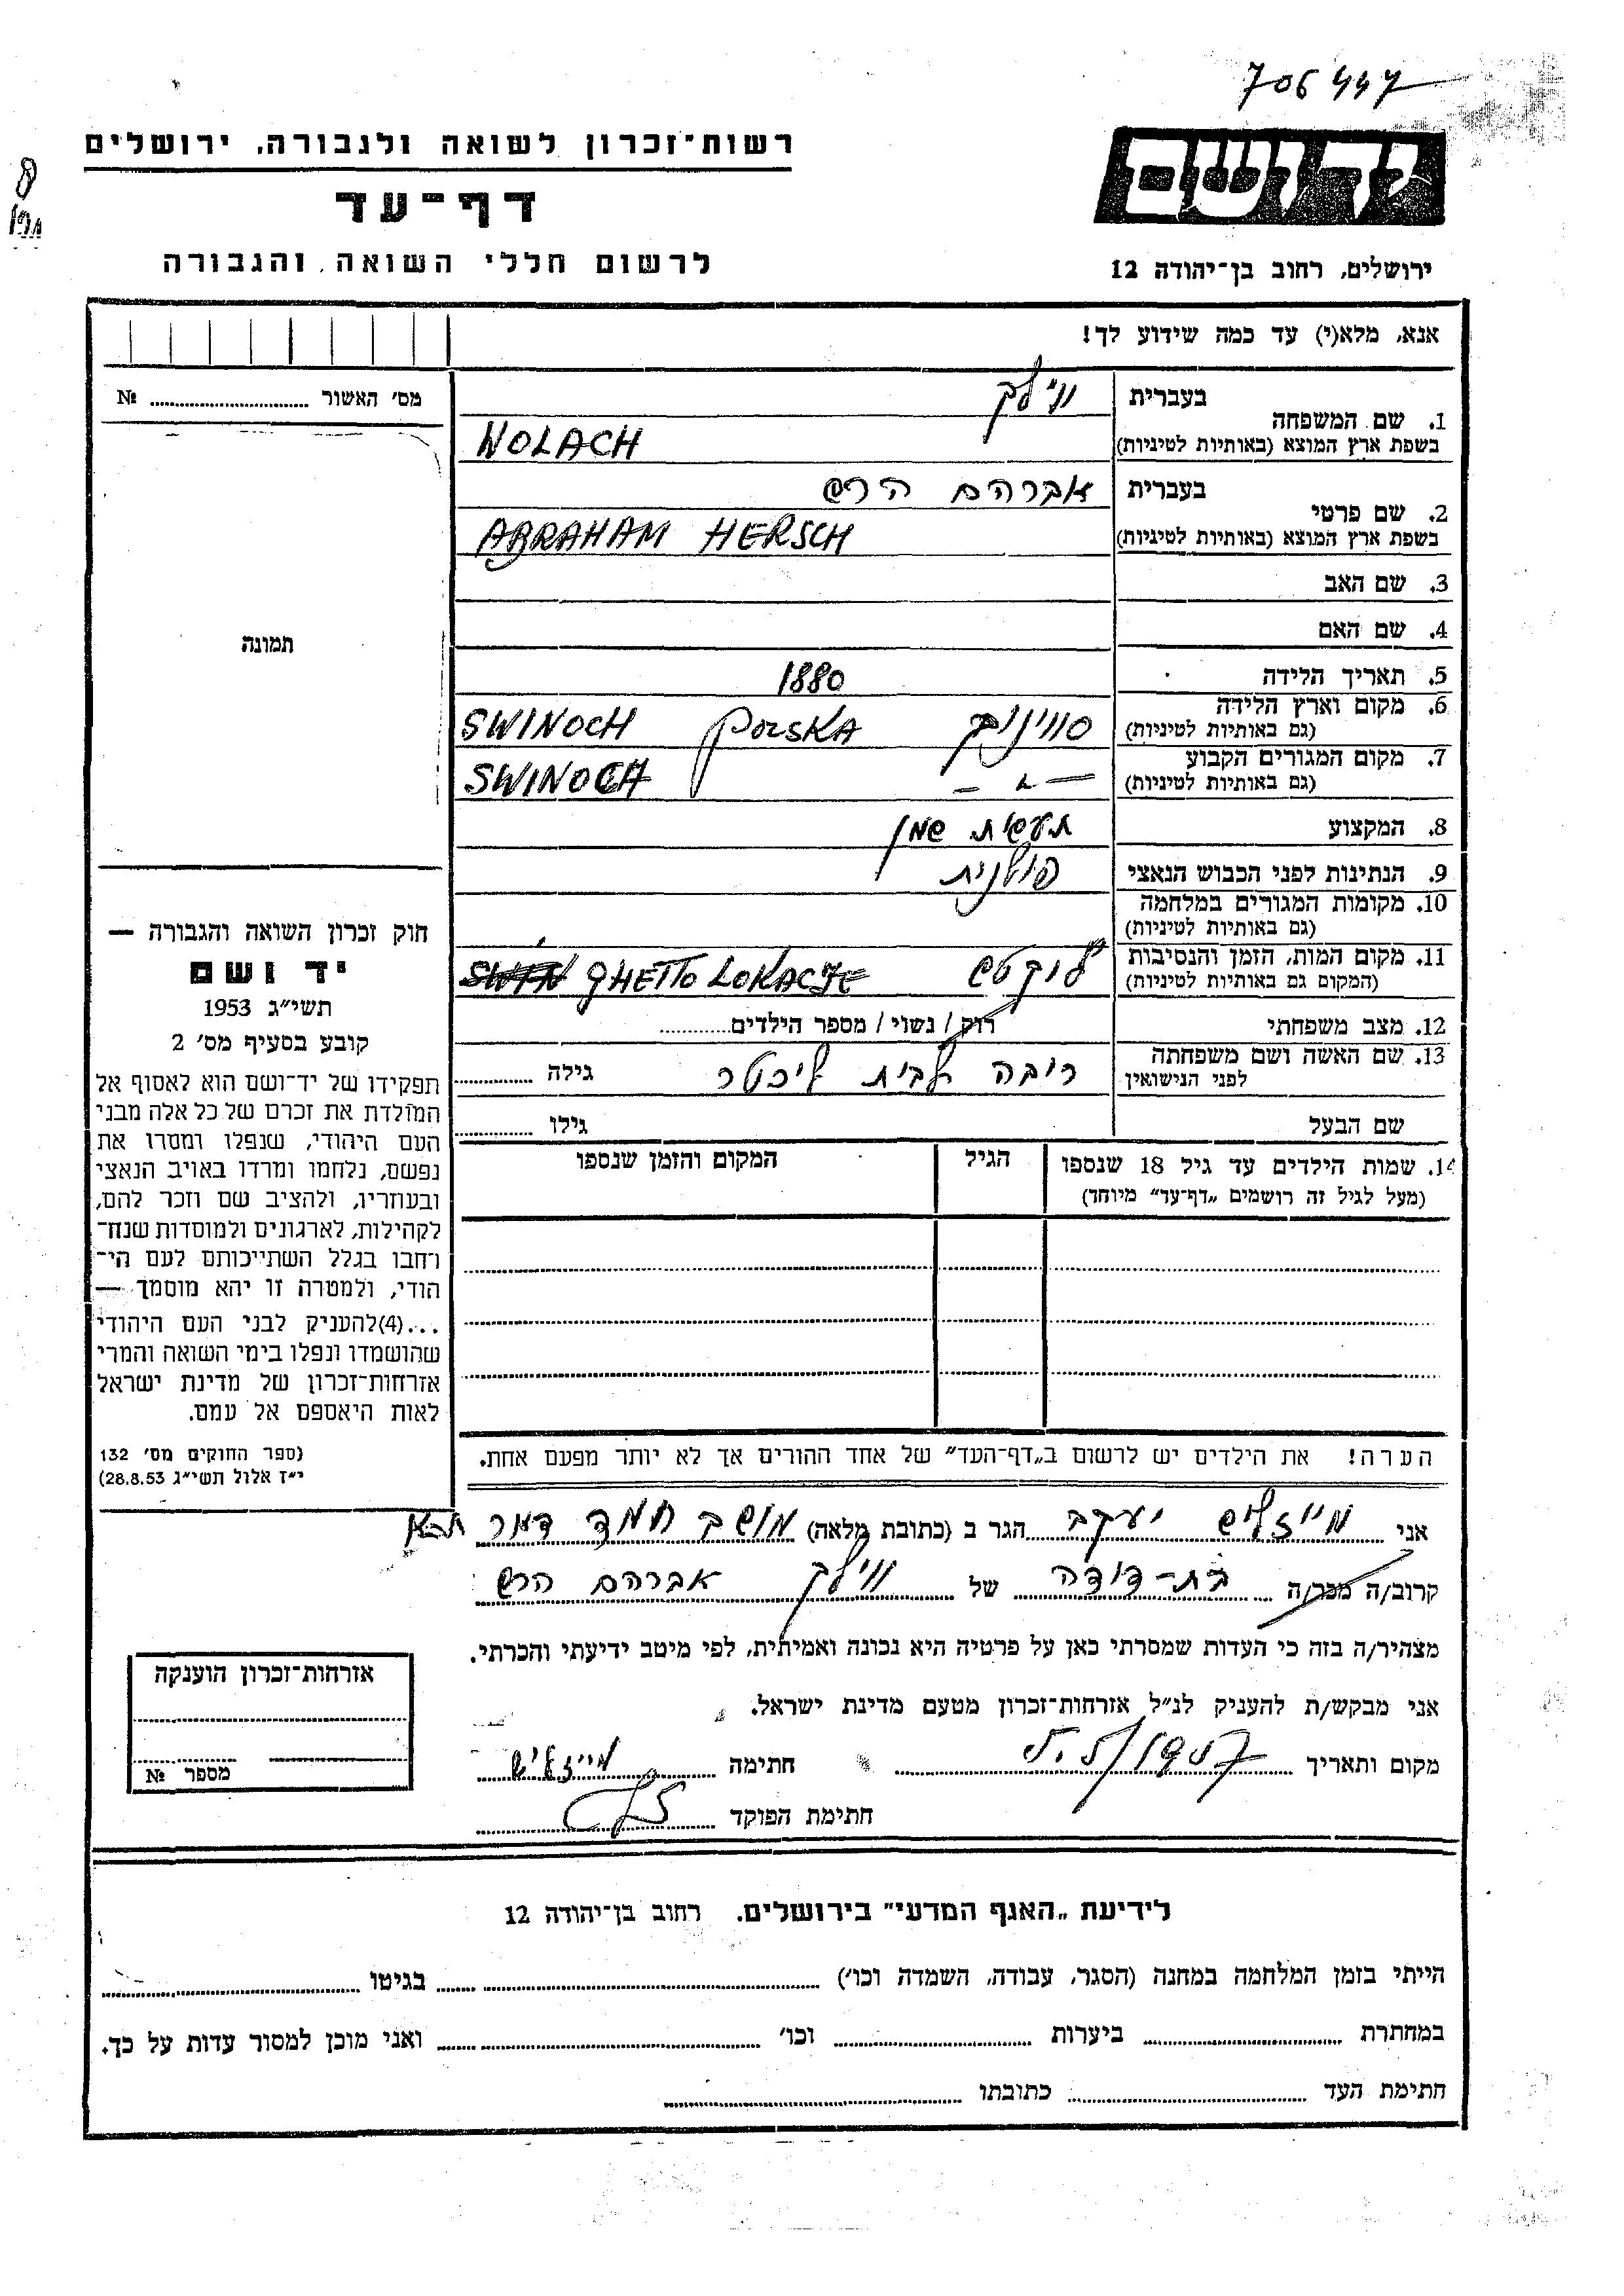 706447
רשות־זכרון לשואה ולגבורה, ירושלים
יד ושם
דף־עד
לרשום חללי השואה והגבורה
ירושלים, רחוב בן־יהודה 12
אנא, מלא(י) עד כמה שידוע לך!
מס׳ האשור № 
1. שם המשפחה
בעברית
בשפת ארץ המוצא (באותיות לטיניות)
WOLACH
2. שם פרטי
בעברית אברהם הרש
בשפת ארץ המוצא (באותיות לטיניות)
ABRAHAM HERSCH
3. שם האב
4. שם האם
תמונה
5. תאריך הלידה 1880
6. מקום וארץ הלידה
(גם באותיות לטיניות)
SWINOCH POLSKA
7. מקום המגורים הקבוע
(גם באותיות לטיניות)
SWINOCH
8. המקצוע תעשית שמן
9. הנתינות לפני הכבוש הנאצי פולנית
10. מקומות המגורים במלחמה
(גם באותיות לטיניות)
11. מקום המות, הזמן והנסיבות
(המקום גם באותיות לטיניות)
GHETTO LOKACJE
12. מצב משפחתי רוק / נשוי / מספר הילדים
13. שם האשה ושם משפחתה
לפני הנישואין
ריבה לבית ליכטר גילה
שם הבעל גילו
14. שמות הילדים עד גיל 18 שנספו הגיל המקום והזמן שנספו
(מעל לגיל זה רושמים „דף־עד״ מיוחד)
חוק זכרון השואה והגבורה —
יד ושם
תשי״ג 1953
קובע בסעיף מס׳ 2
תפקידו של יד־ושם הוא לאסוף אל
המולדת את זכרם של כל אלה מבני
העם היהודי, שנפלו ומסרו את
נפשם, נלחמו ומרדו באויב הנאצי
ובעוזריו, ולהציב שם וזכר להם,
לקהילות, לארגונים ולמוסדות שנח־
רחבו בגלל השתייכותם לעם הי־
הודי, ולמטרה זו יהא מוסמך —
...(4)להעניק לבני העם היהודי
שהושמדו ונפלו בימי השואה והמרי
אזרחות־זכרון של מדינת ישראל
לאות היאספם אל עמם.
(ספר החוקים מס׳ 132
י״ז אלול תשי״ג 28.8.53)
הערה! את הילדים יש לרשום ב„דף־העד״ של אחד ההורים אך לא יותר מפעם אחת.
אני מייזליש יעקב הגר ב (כתובת מלאה) מושב חמד דאר
קרוב/ה מכר/ה בת-דודה של אברהם הרש
מצהיר/ה בזה כי העדות שמסרתי כאן על פרטיה היא נכונה ואמיתית, לפי מיטב ידיעתי והכרתי.
אני מבקש/ת להעניק לנ״ל אזרחות־זכרון מטעם מדינת ישראל.
מקום ותאריך חתימה מייזליש
חתימת הפוקד
אזרחות־זכרון הוענקה
מספר №
לידיעת „האגף המדעי״ בירושלים. רחוב בן־יהודה 12
הייתי בזמן המלחמה במחנה (הסגר, עבודה, השמדה וכו׳) בגיטו
במחתרת ביערות וכו׳ ואני מוכן למסור עדות על כך.
חתימת העד כתובתו